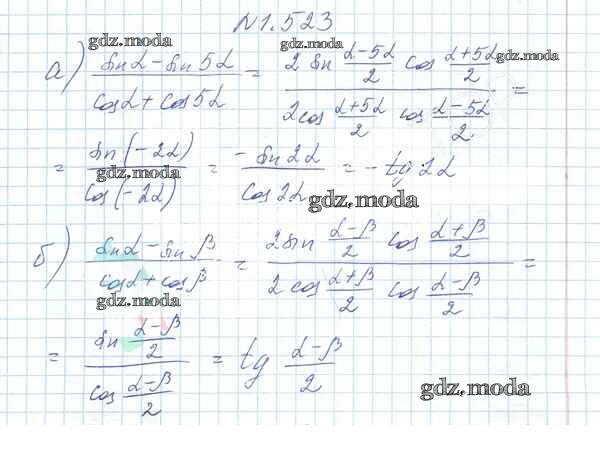 N 1.523
gdz.moda gdz.moda gdz.moda
а) (sin α - sin 5α)/(cos α + cos 5α) = (2 sin (α-5α)/2 cos (α+5α)/2)/(2 cos (α+5α)/2 cos (α-5α)/2) =
= (sin (-2α))/(cos (-2α)) = (- sin 2α)/(cos 2α) = - tg 2α
gdz.moda gdz.moda
б) (sin α - sin β)/(cos α + cos β) = (2 sin (α-β)/2 cos (α+β)/2)/(2 cos (α+β)/2 cos (α-β)/2) =
gdz.moda gdz.moda
= (sin (α-β)/2)/(cos (α-β)/2) = tg (α-β)/2
gdz.moda